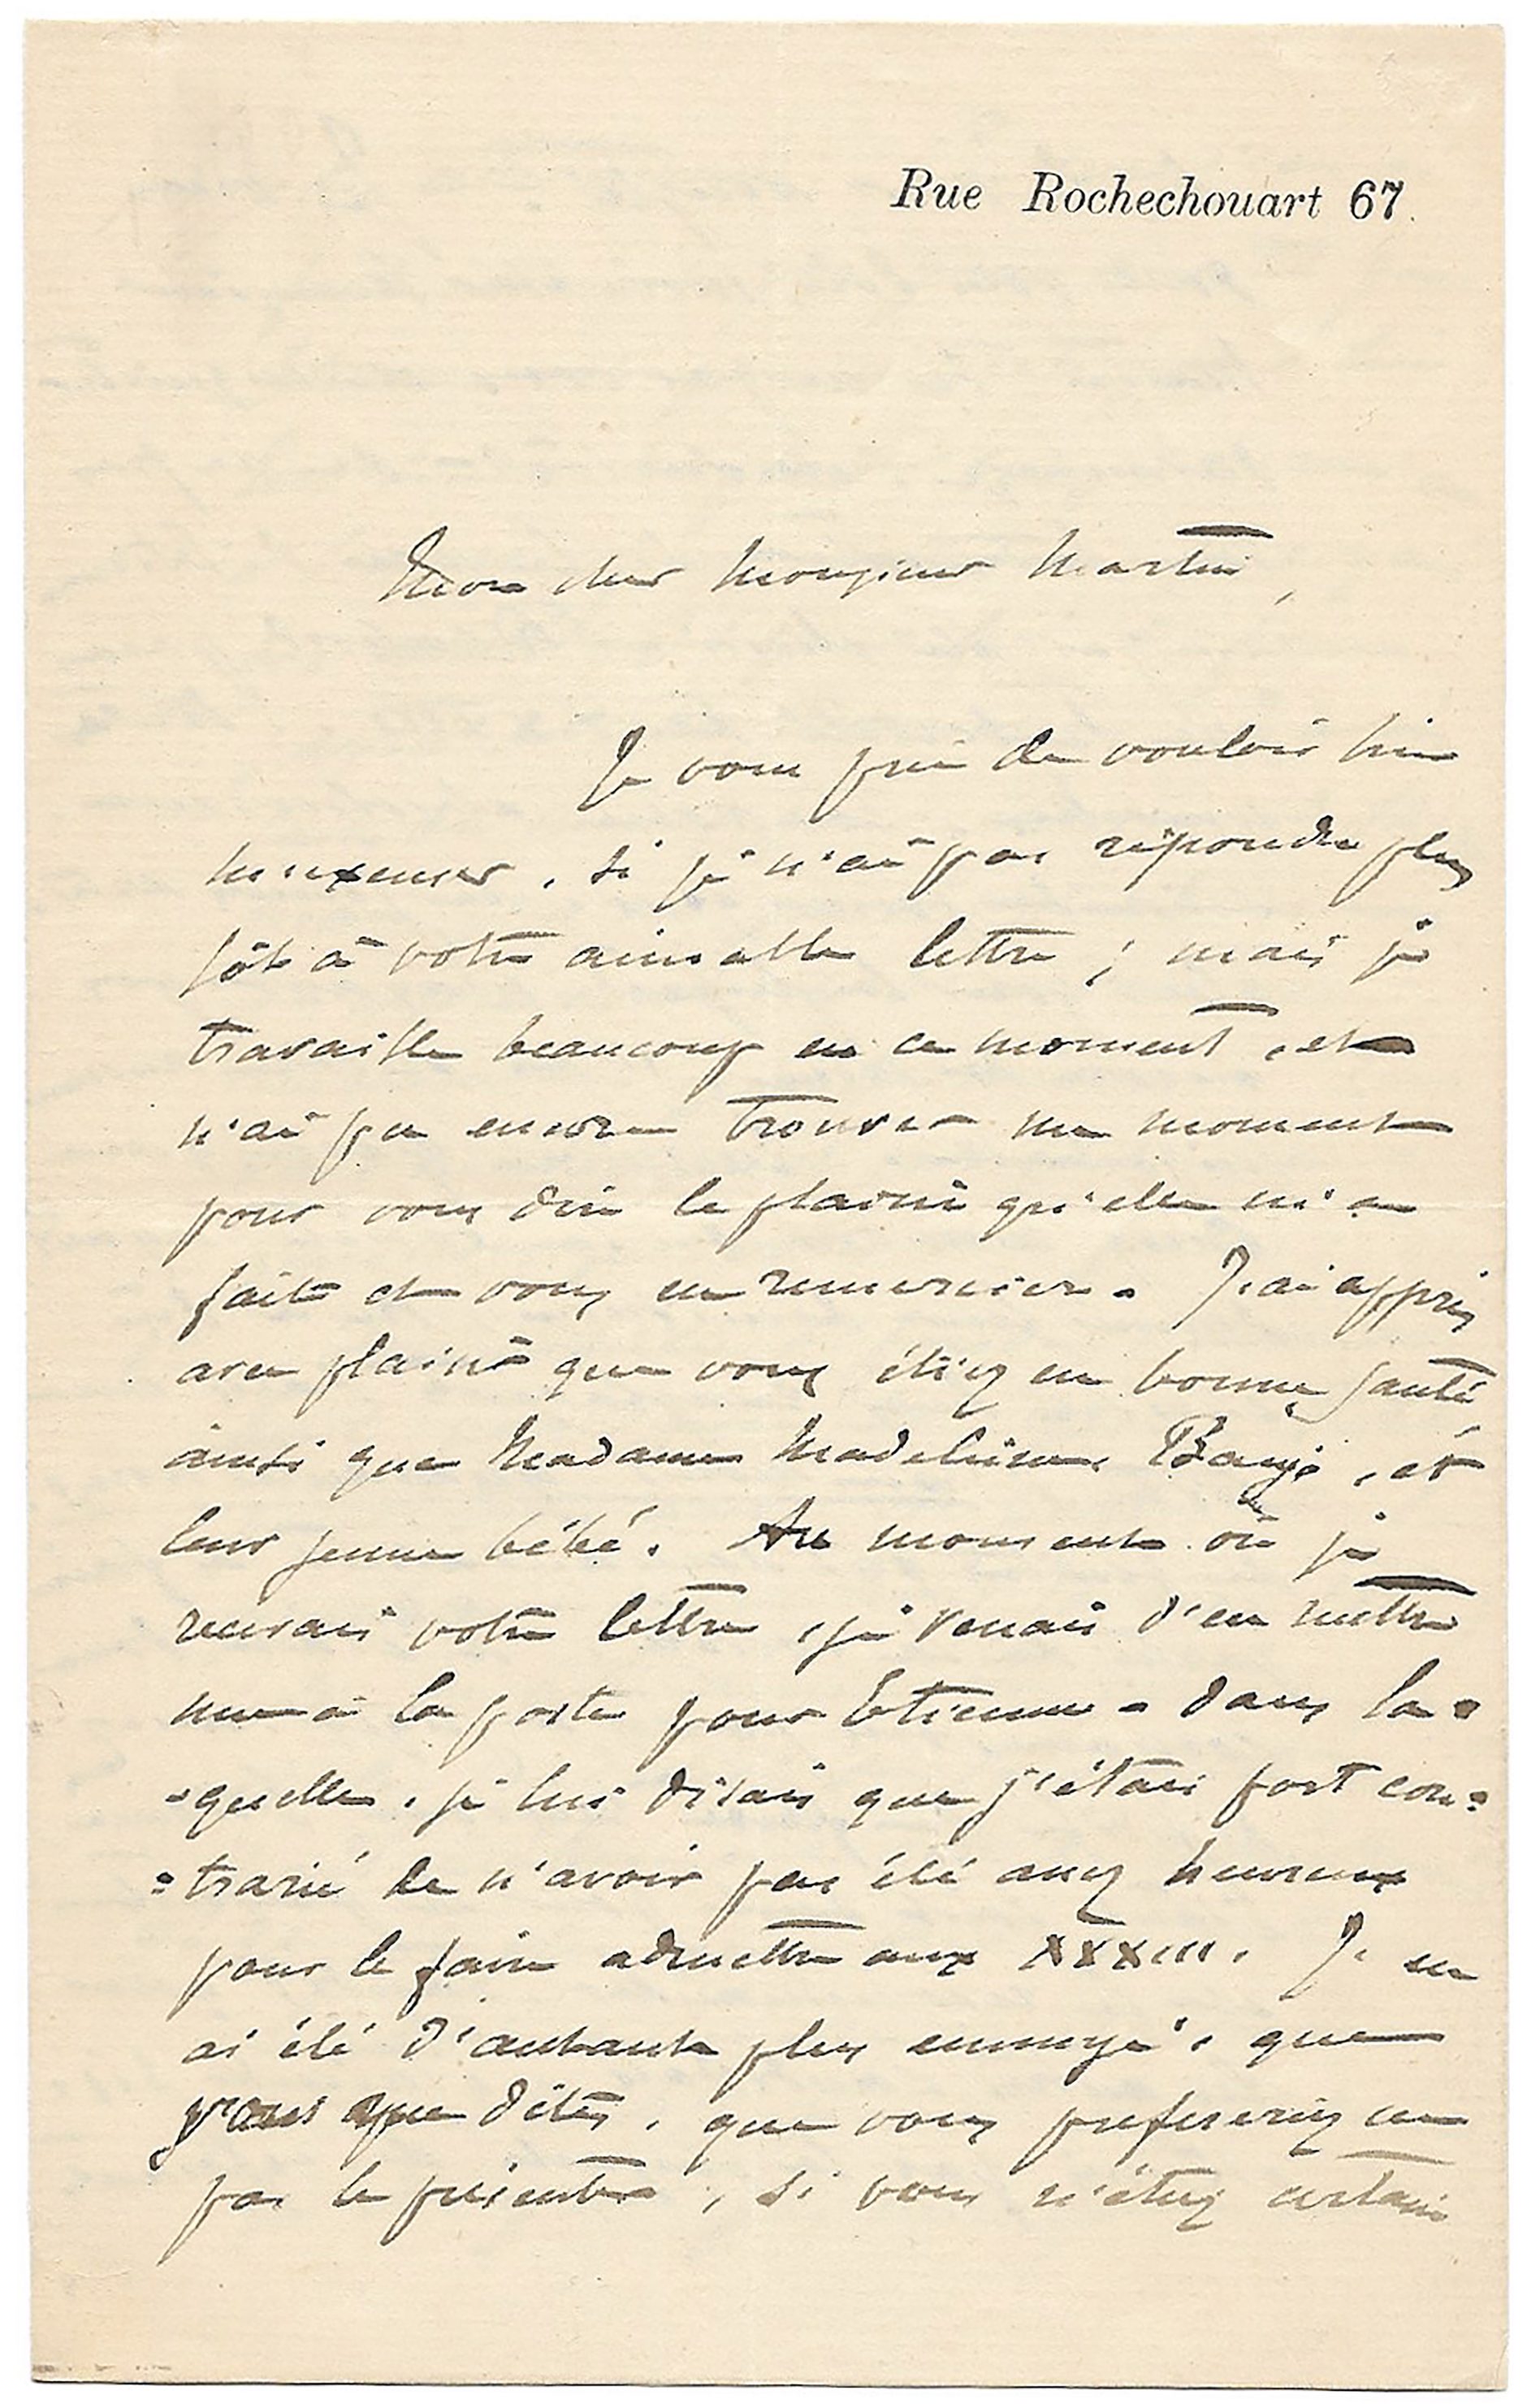 Rue Rochechouart 67.
Mon cher Monsieur Martin,
Je vous prie de vouloir bien
m'excuser, si je n'ai pas répondu plus
tôt à votre aimable lettre ; mais je
travaille beaucoup en ce moment, et
n'ai pu encore trouver un moment
pour vous dire le plaisir qu'elle m'a
fait et vous en remercier. J'ai appris
avec plaisir que vous étiez en bonne santé
ainsi que Madame Madeleine, et
leur jeune bébé. Au moment où je
recevais votre lettre, je venais d'en mettre
une à la poste pour Etienne - dans la=
=quelle, je lui disais que j'étais fort con=
=trarié de n'avoir pas été assez heureux
pour le faire admettre aux XXXIII. Je en
ai été d'autant plus ennuyé, que
vous dites, que vous preferiez ne
pas le présenter, si vous n'étiez certain